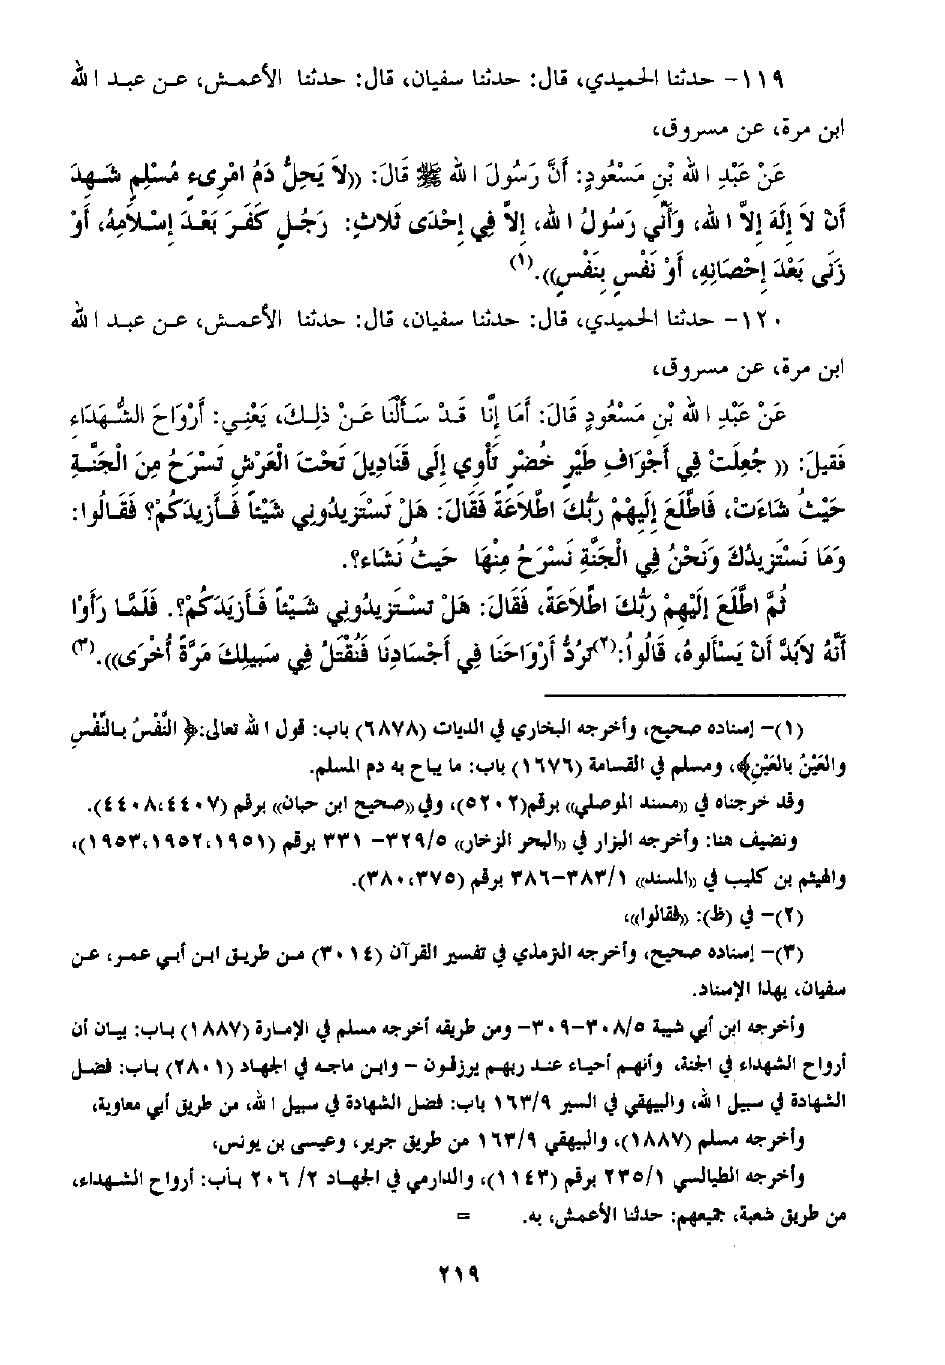 ١١٩- حدثنا الحميدي، قال: حدثنا سفيان، قال: حدثنا الأعمش، عن عبد الله
ابن مرة، عن مسروق،
عَنْ عَبْدِ اللهِ بْنِ مَسْعُودٍ: أَنَّ رَسُولَ اللهِ ﷺ قَالَ: ((لاَ يَحِلُّ دَمُ امْرِىءٍ مُسْلِمٍ شَهِدَ
أَنْ لاَ إِلَهَ إِلاَّ الله، وَأَنِّي رَسُولُ الله، إِلاَّ فِي إِحْدَى ثَلاَثٍ: رَجُلٍ كَفَرَ بَعْدَ إِسْلاَمِهِ، أَوْ
زَنَى بَعْدَ إِحْصَانِهِ، أَوْ نَفْسٍ بِنَفْسٍ)).(١)
١٢٠- حدثنا الحميدي، قال: حدثنا سفيان، قال: حدثنا الأعمش، عن عبد الله
ابن مرة، عن مسروق،
عَنْ عَبْدِ اللهِ بْنِ مَسْعُودٍ قَالَ: أَمَا إِنَّا قَدْ سَأَلْنَا عَنْ ذلِكَ، يَعْنِي: أَرْوَاحَ الشُّهَدَاءِ
فَقِيلَ: (( جُعِلَتْ فِي أَجْوَافِ طَيْرٍ خُضْرٍ تَأْوِي إِلَى قَنَادِيلَ تَحْتَ الْعَرْشِ تَسْرَحُ مِنَ الْجَنَّةِ
حَيْثُ شَاءَتْ، فَاطَّلَعَ إِلَيْهِمْ رَبُّكَ اطِّلاَعَةً فَقَالَ: هَلْ تَسْتَزِيدُونِي شَيْئاً فَأَزِيدَكُمْ؟ فَقَالُوا:
وَمَا نَسْتَزِيدُكَ وَنَحْنُ فِي الْجَنَّةِ نَسْرَحُ مِنْهَا حَيْثُ نَشَاء؟.
ثُمَّ اطَّلَعَ إِلَيْهِمْ رَبُّكَ اطِّلاَعَةً، فَقَالَ: هَلْ تَسْتَزِيدُونِي شَيْئاً فَأَزِيدَكُمْ؟. فَلَمَّا رَأَوْا
أَنَّهُ لاَبُدَّ أَنْ يَسْأَلُوهُ، قَالُوا:(٢)تَرُدُّ أَرْوَاحَنَا فِي أَجْسَادِنَا فَنُقْتَلُ فِي سَبِيلِكَ مَرَّةً أُخْرَى)).(٣)
(١)- إسناده صحيح، وأخرجه البخاري في الديات (٦٨٧٨) باب: قول الله تعالى:﴿ النَّفْسُ بِالنَّفْسِ
والعَيْنُ بالعَيْنِ﴾، ومسلم في القسامة (١٦٧٦) باب: ما يباح به دم المسلم.
وقد خرجناه في ((مسند الموصلي)) برقم(٥٢٠٢)، وفي((صحيح ابن حبان)) برقم (٤٤٠٧،٤٤٠٨).
ونضيف هنا: وأخرجه البزار في ((البحر الزخار)) ٣٢٩/٥- ٣٣١ برقم (١٩٥١،١٩٥٢،١٩٥٣)،
والهيثم بن كليب في ((المسند)) ٣٨٣/١-٣٨٦ برقم (٣٧٥،٣٨٠).
(٢)- في (ظ): ((فقالوا))،
(٣)- إسناده صحيح، وأخرجه الترمذي في تفسير القرآن (٣٠١٤) من طريق ابن أبي عمر، عن
سفيان، بهذا الإسناد.
وأخرجه ابن أبي شيبة ٣٠٨/٥-٣٠٩- ومن طريقه أخرجه مسلم في الإمارة (١٨٨٧) باب: بيان أن
أرواح الشهداء في الجنة، وأنهم أحياء عند ربهم يرزقون - وابن ماجه في الجهاد (٢٨٠١) باب: فضل
الشهادة في سبيل الله، والبيهقي في السير ١٦٣/٩ باب: فضل الشهادة في سبيل الله، من طريق أبي معاوية،
وأخرجه مسلم (١٨٨٧)، والبيهقي ١٦٣/٩ من طريق جرير، وعيسى بن يونس،
وأخرجه الطيالسي ٢٣٥/١ برقم (١١٤٣)، والدارمي في الجهاد ٢/ ٢٠٦ باب: أرواح الشهداء،
من طريق شعبة، جميعهم: حدثنا الأعمش، به. =
٢١٩